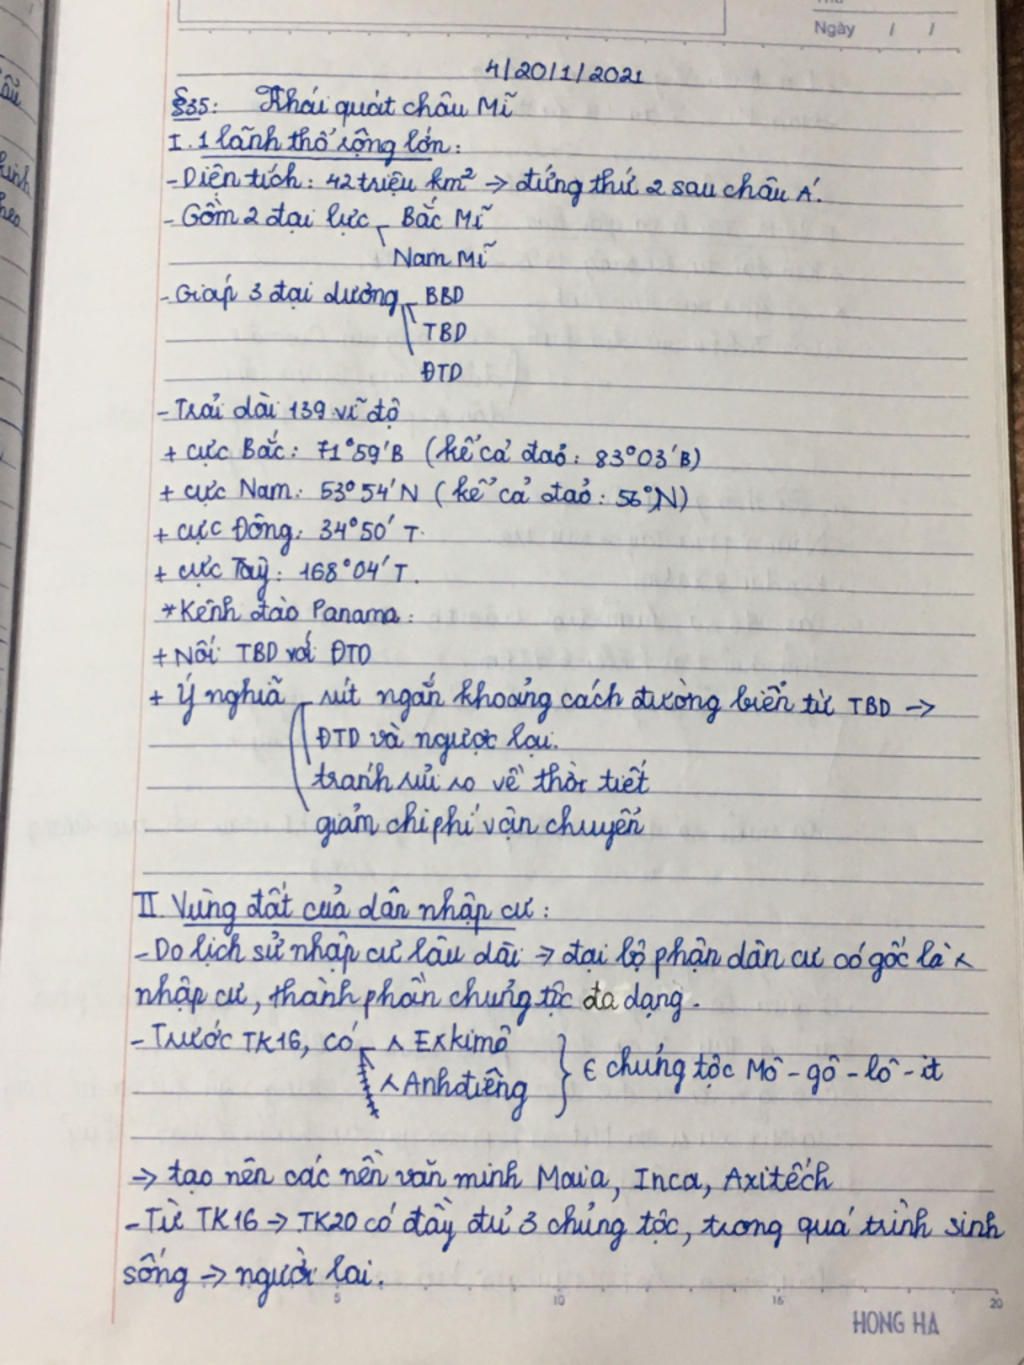 Ngày / /
4/20/1/2021
§35: Khái quát châu Mĩ
I. 1 lãnh thổ rộng lớn:
- Diện tích: 42 triệu km² → đứng thứ 2 sau châu Á.
- Gồm 2 đại lục - Bắc Mĩ
Nam Mĩ
- Giáp 3 đại dương - BBD
TBD
ĐTD
- Trải dài 139 vĩ độ
+ cực Bắc: 71°59'B (kể cả đảo: 83°03'B)
+ cực Nam: 53°54'N (kể cả đảo: 56°N)
+ cực Đông: 34°50' T.
+ cực Tây: 168°04' T.
*Kênh đào Panama:
+ Nối TBD với ĐTD
+ Ý nghĩa - rút ngắn khoảng cách đường biển từ TBD →
ĐTD và ngược lại.
tránh rủi ro về thời tiết
giảm chi phí vận chuyển
II. Vùng đất của dân nhập cư:
- Do lịch sử nhập cư lâu dài → đại bộ phận dân cư có gốc là ʌ
nhập cư, thành phần chủng tộc đa dạng.
- Trước TK16, có - ʌ Exkimô
ʌ Anhđiêng } ∈ chủng tộc Mô-gô-lô-it
→ tạo nên các nền văn minh Maia, Inca, Axitếch
- Từ TK16 → TK20 có đầy đủ 3 chủng tộc, trong quá trình sinh
sống → người lai.
5 10 15 20
HONG HA